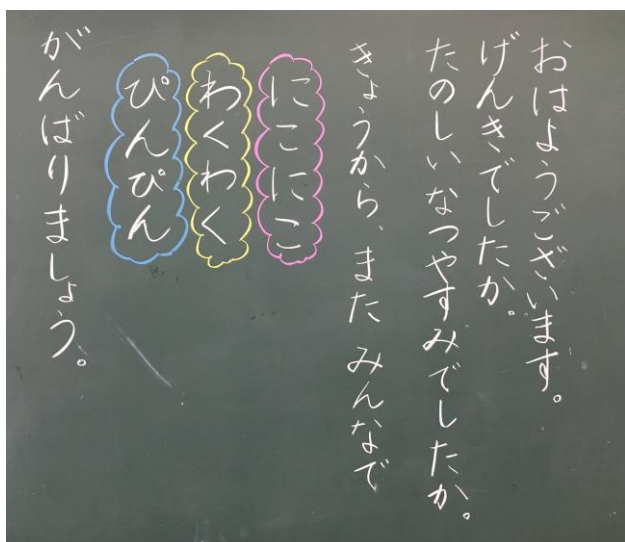 おはようございます。
げんきでしたか。
たのしいなつやすみでしたか。
きょうから、また みんなで
にこにこ
わくわく
ぴんぴん
がんばりましょう。